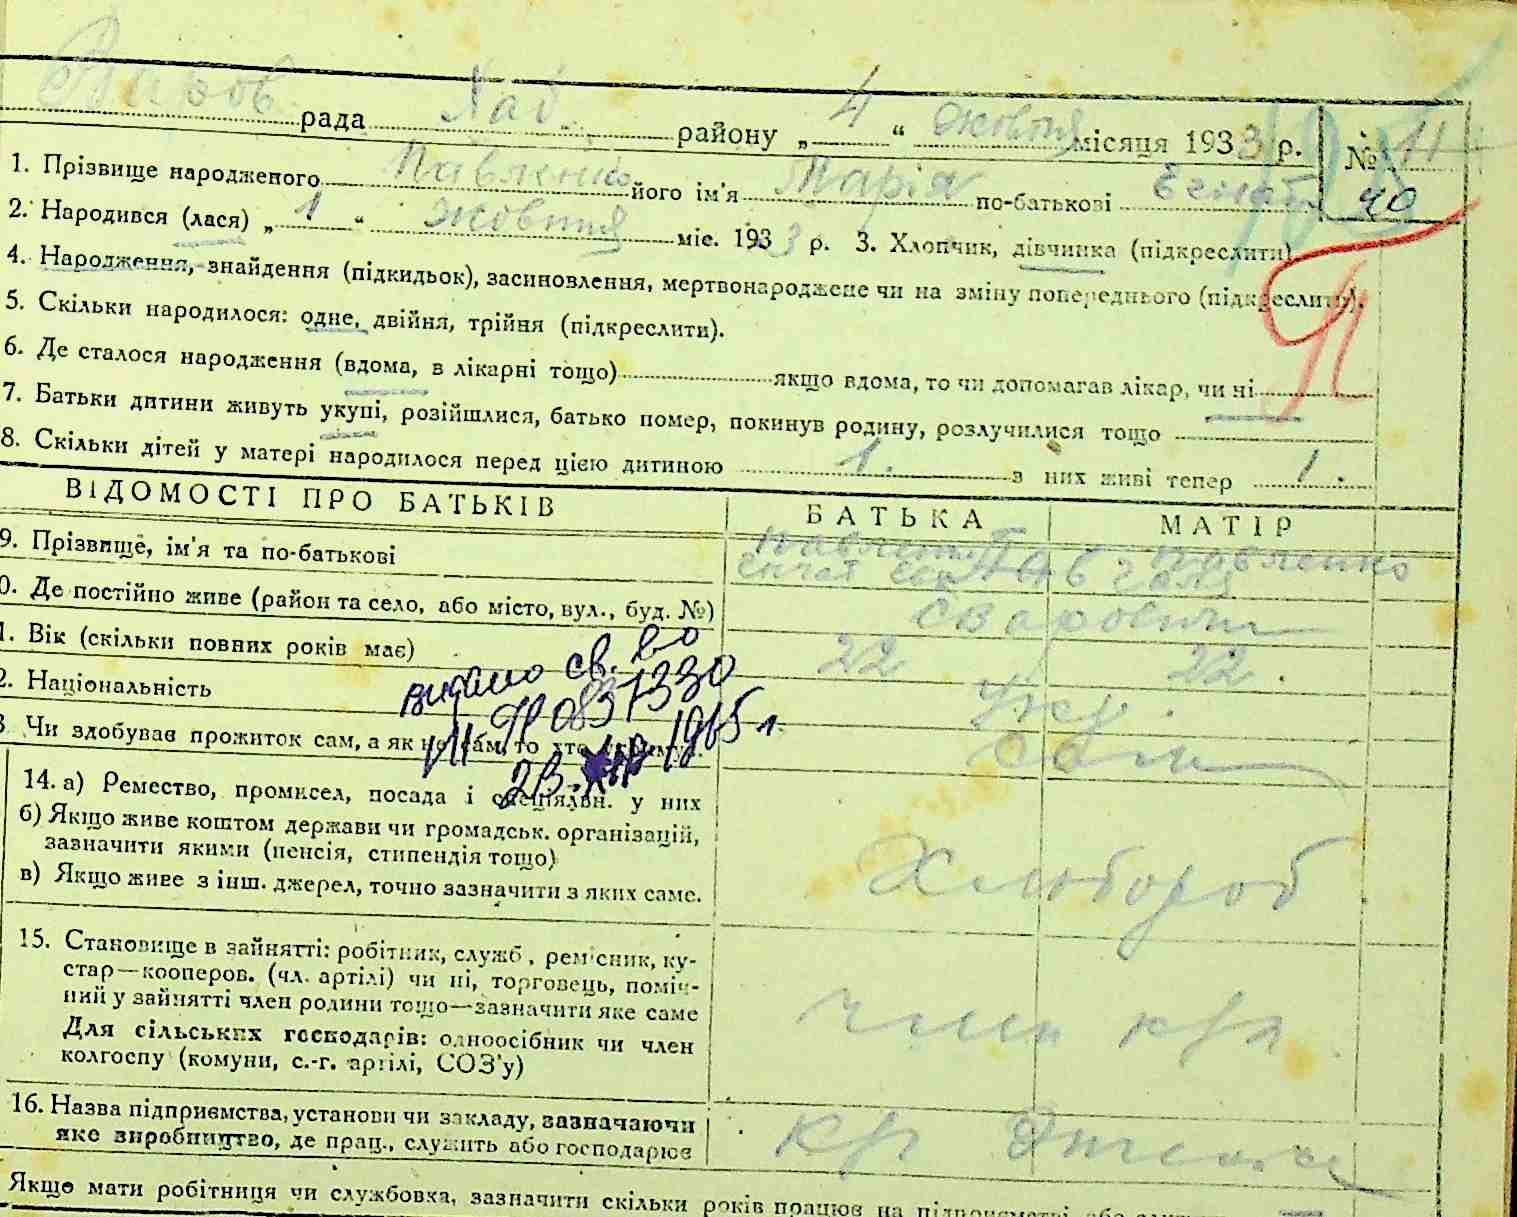 рада Хаб. району „ 4 “ жовтня місяця 1933 р. № 11
1. Прізвище народженого Павленко його ім'я Марія по-батькові
40
2. Народився (лася) „ 1 “ жовтня міс. 1933 р. 3. Хлопчик, дівчинка (підкреслити)
4. Народження, знайдення (підкидьок), засиновлення, мертвонароджене чи на зміну попереднього (підкреслити).
5. Скільки народилося: одне, двійня, трійня (підкреслити).
6. Де сталося народження (вдома, в лікарні тощо) якщо вдома, то чи допомагав лікар, чи ні
7. Батьки дитини живуть укупі, розійшлися, батько помер, покинув родину, розлучилися тощо
8. Скільки дітей у матері народилося перед цією дитиною 1. з них живі тепер 1.
ВІДОМОСТІ ПРО БАТЬКІВ БАТЬКА МАТІР
9. Прізвище, ім'я та по-батькові Павленко
0. Де постійно живе (район та село, або місто, вул., буд. №)
1. Вік (скільки повних років має) 22 22.
2. Національність Укр.
3 Чи здобуває прожиток сам, а як не сам, то хто сам
видано св. во
0837330
23. 1965 г.
14. а) Ремество, промисел, посада і спеціяльн. у них
б) Якщо живе коштом держави чи громадськ. організацій,
зазначити якими (пенсія, стипендія тощо)
в) Якщо живе з інш. джерел, точно зазначити з яких саме.
Хлібороб
15. Становище в зайнятті: робітник, служб., рем'сник, ку-
стар—кооперов. (чл. артілі) чи ні, торговець, поміч-
ний у зайнятті член родини тощо—зазначити яке саме
Для сільських господарів: одноосібник чи член
колгоспу (комуни, с.-г. артілі, СОЗ'у)
член к/г
16. Назва підприємства, установи чи закладу, зазначаючи
яке виробництво, де прац., служить або господарює
к/г
Якщо мати робітниця чи службовка, зазначити скільки років працює на підприємстві або